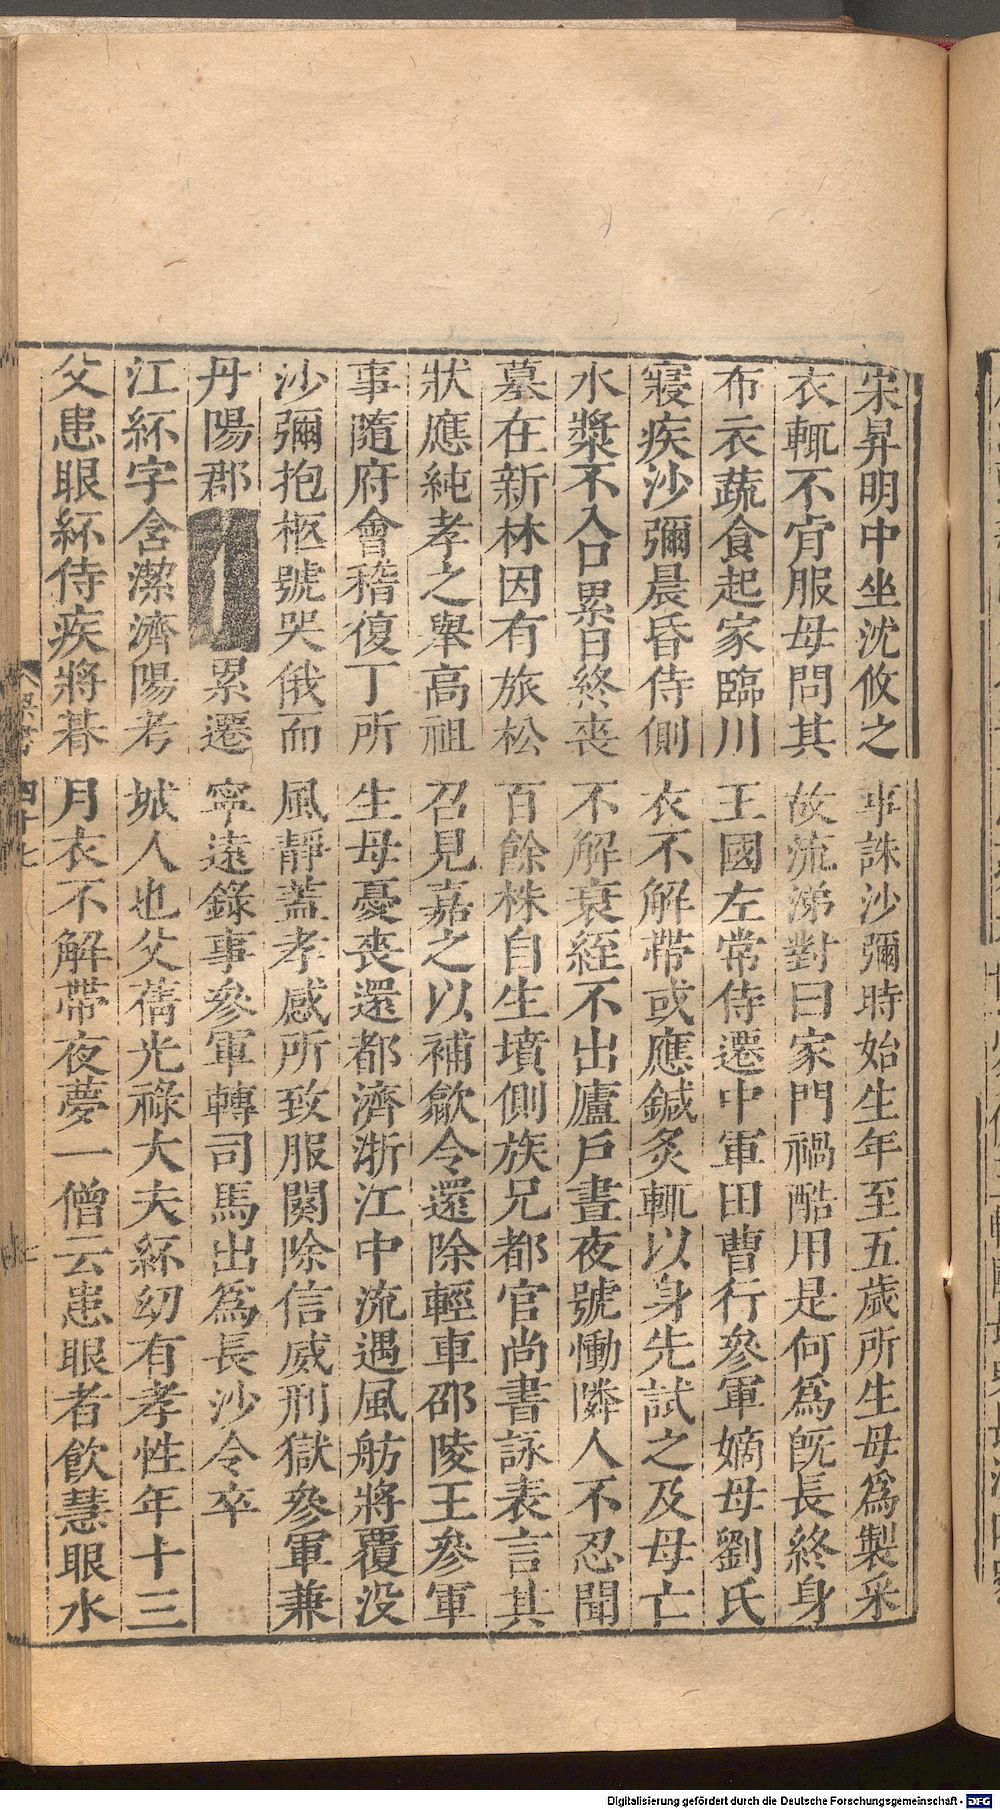 宋昇明中坐沈攸之事誅沙彌時始生年至五歲所生母爲製采
衣輒不肯服母問其故流涕對曰家門禍酷用是何爲旣長終身
布衣蔬食起家臨川王國左常侍遷中軍田曹行參軍嫡母劉氏
寢疾沙彌晨昏侍側衣不解帶或應鍼灸輒以身先試之及母亡
水漿不入口累日終喪不解衰絰不出廬戶晝夜號慟隣人不忍聞
墓在新林因有旅松百餘株自生墳側族兄都官尚書詠表言其
狀應純孝之舉高祖召見嘉之以補歙令還除輕車邵陵王參軍
事隨府會稽復丁所生母憂喪還都濟浙江中流遇風舫將覆没
沙彌抱柩號哭俄而風靜蓋孝感所致服闋除信威刑獄參軍兼
丹陽郡累遷寧遠錄事參軍轉司馬出爲長沙令卒
江紑字含潔濟陽考城人也父蒨光祿大夫紑幼有孝性年十三
父患眼紑侍疾將朞月衣不解帶夜夢一僧云患眼者飲慧眼水
四十七
七
Digitalisierung gefördert durch die Deutsche Forschungsgemeinschaft - DFG